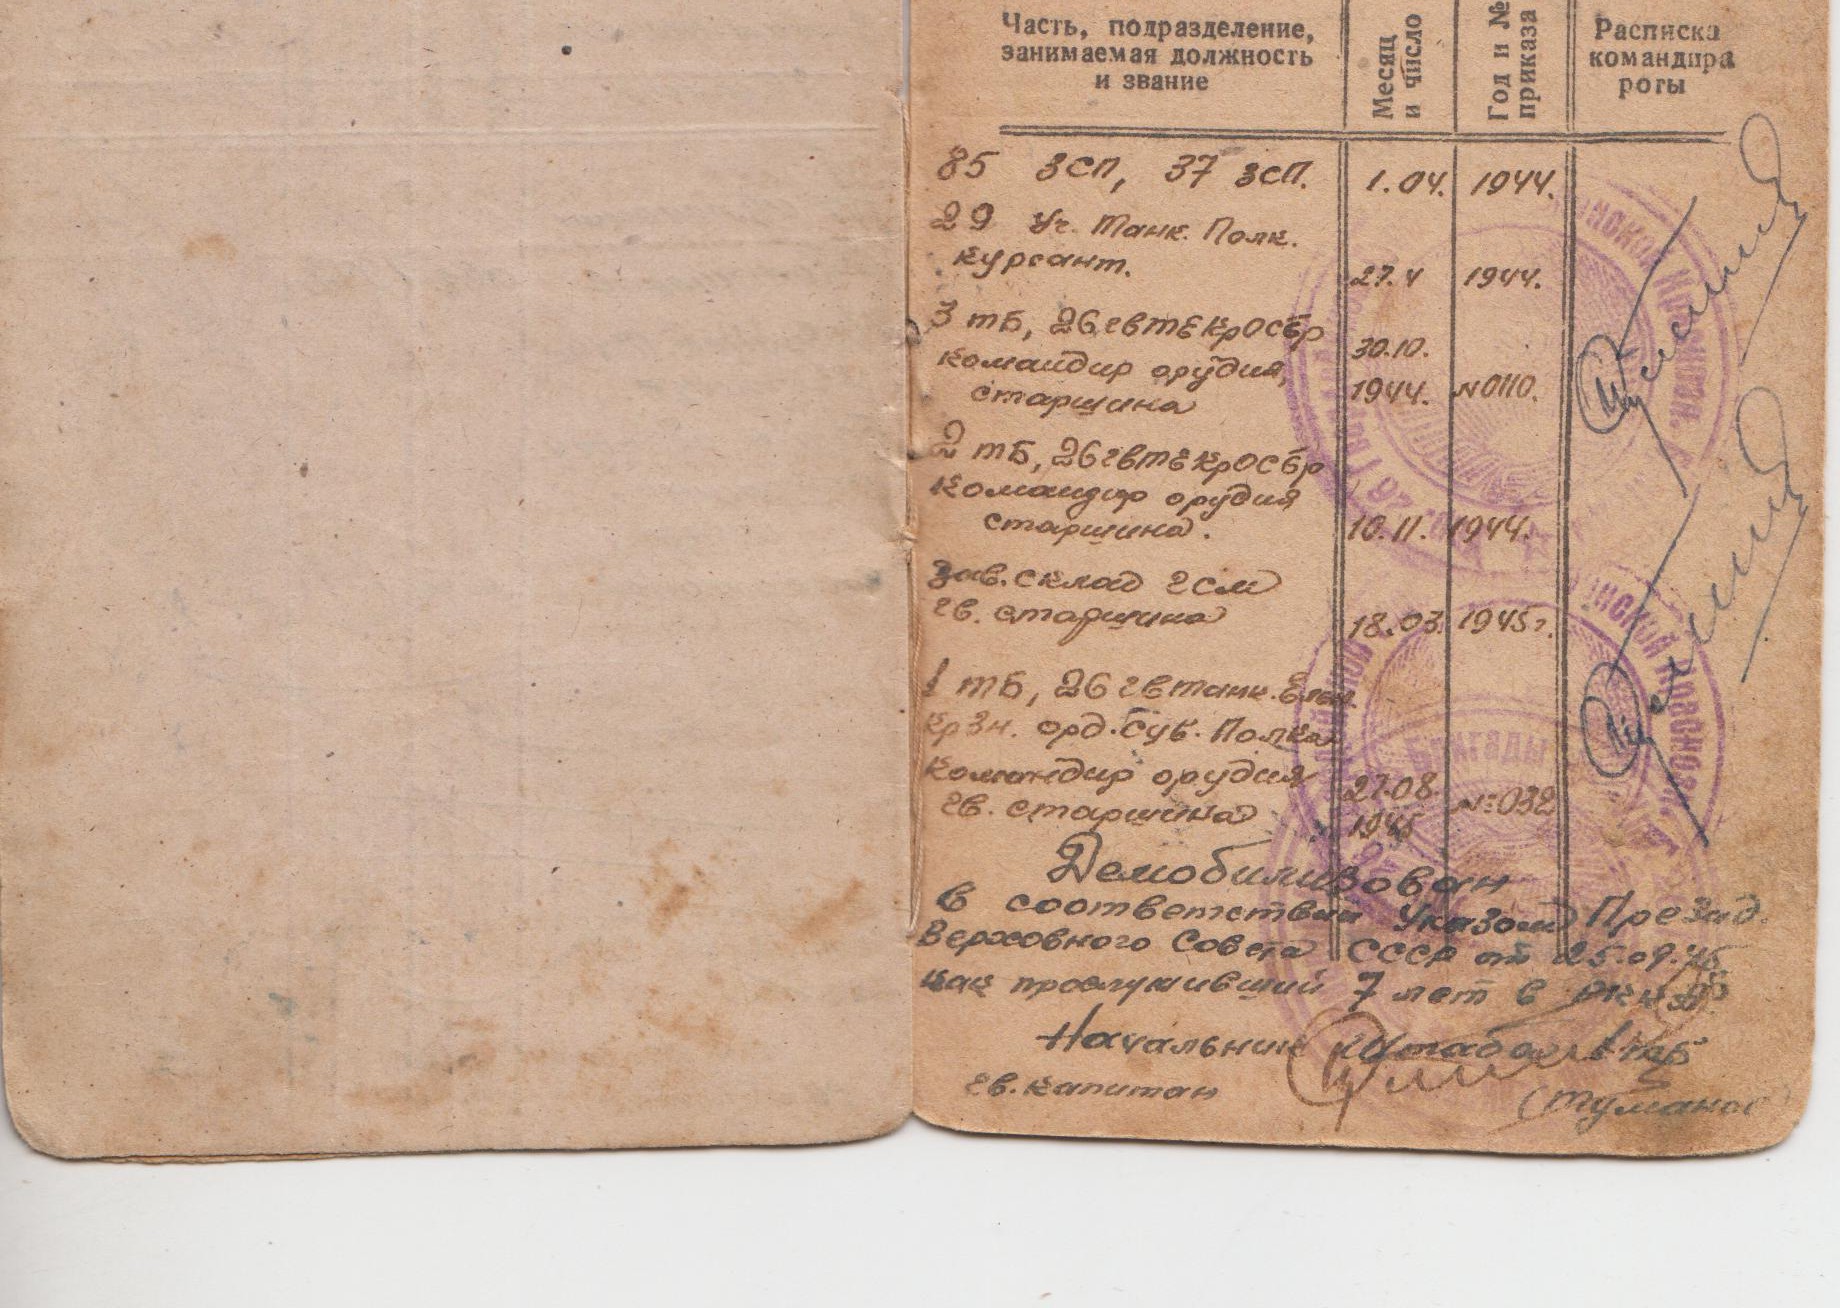 Часть, подразделение,
занимаемая должность
и звание
Месяц
и число
Год и №
приказа
Расписка
командира
роты
85 зсп, 37 зсп. 1.04. 1944.
29 Уч. Танк. Полк.
курсант. 27.4 1944.
3 тб, 26 гвтЕКрОСбр 30.10.
командир орудия, 1944. №0110.
старшина
2 тб, 26 гвтЕКрОСбр
командир орудия
старшина. 10.11. 1944.
Зав. склад гсм
гв. старшина 18.03. 1945г.
1 тб, 26 гв танк. Ельн.
Кр Зн. орд. Сув. Полка
командир орудия 27.08.
гв. старшина 1945 №032
Демобилизован
в соответствии Указом Презид.
Верховного Совета СССР от 25.09.45
как прослуживший 7 лет в
Начальник Штаба 1 тб
гв. капитан (Туманов)
бригады